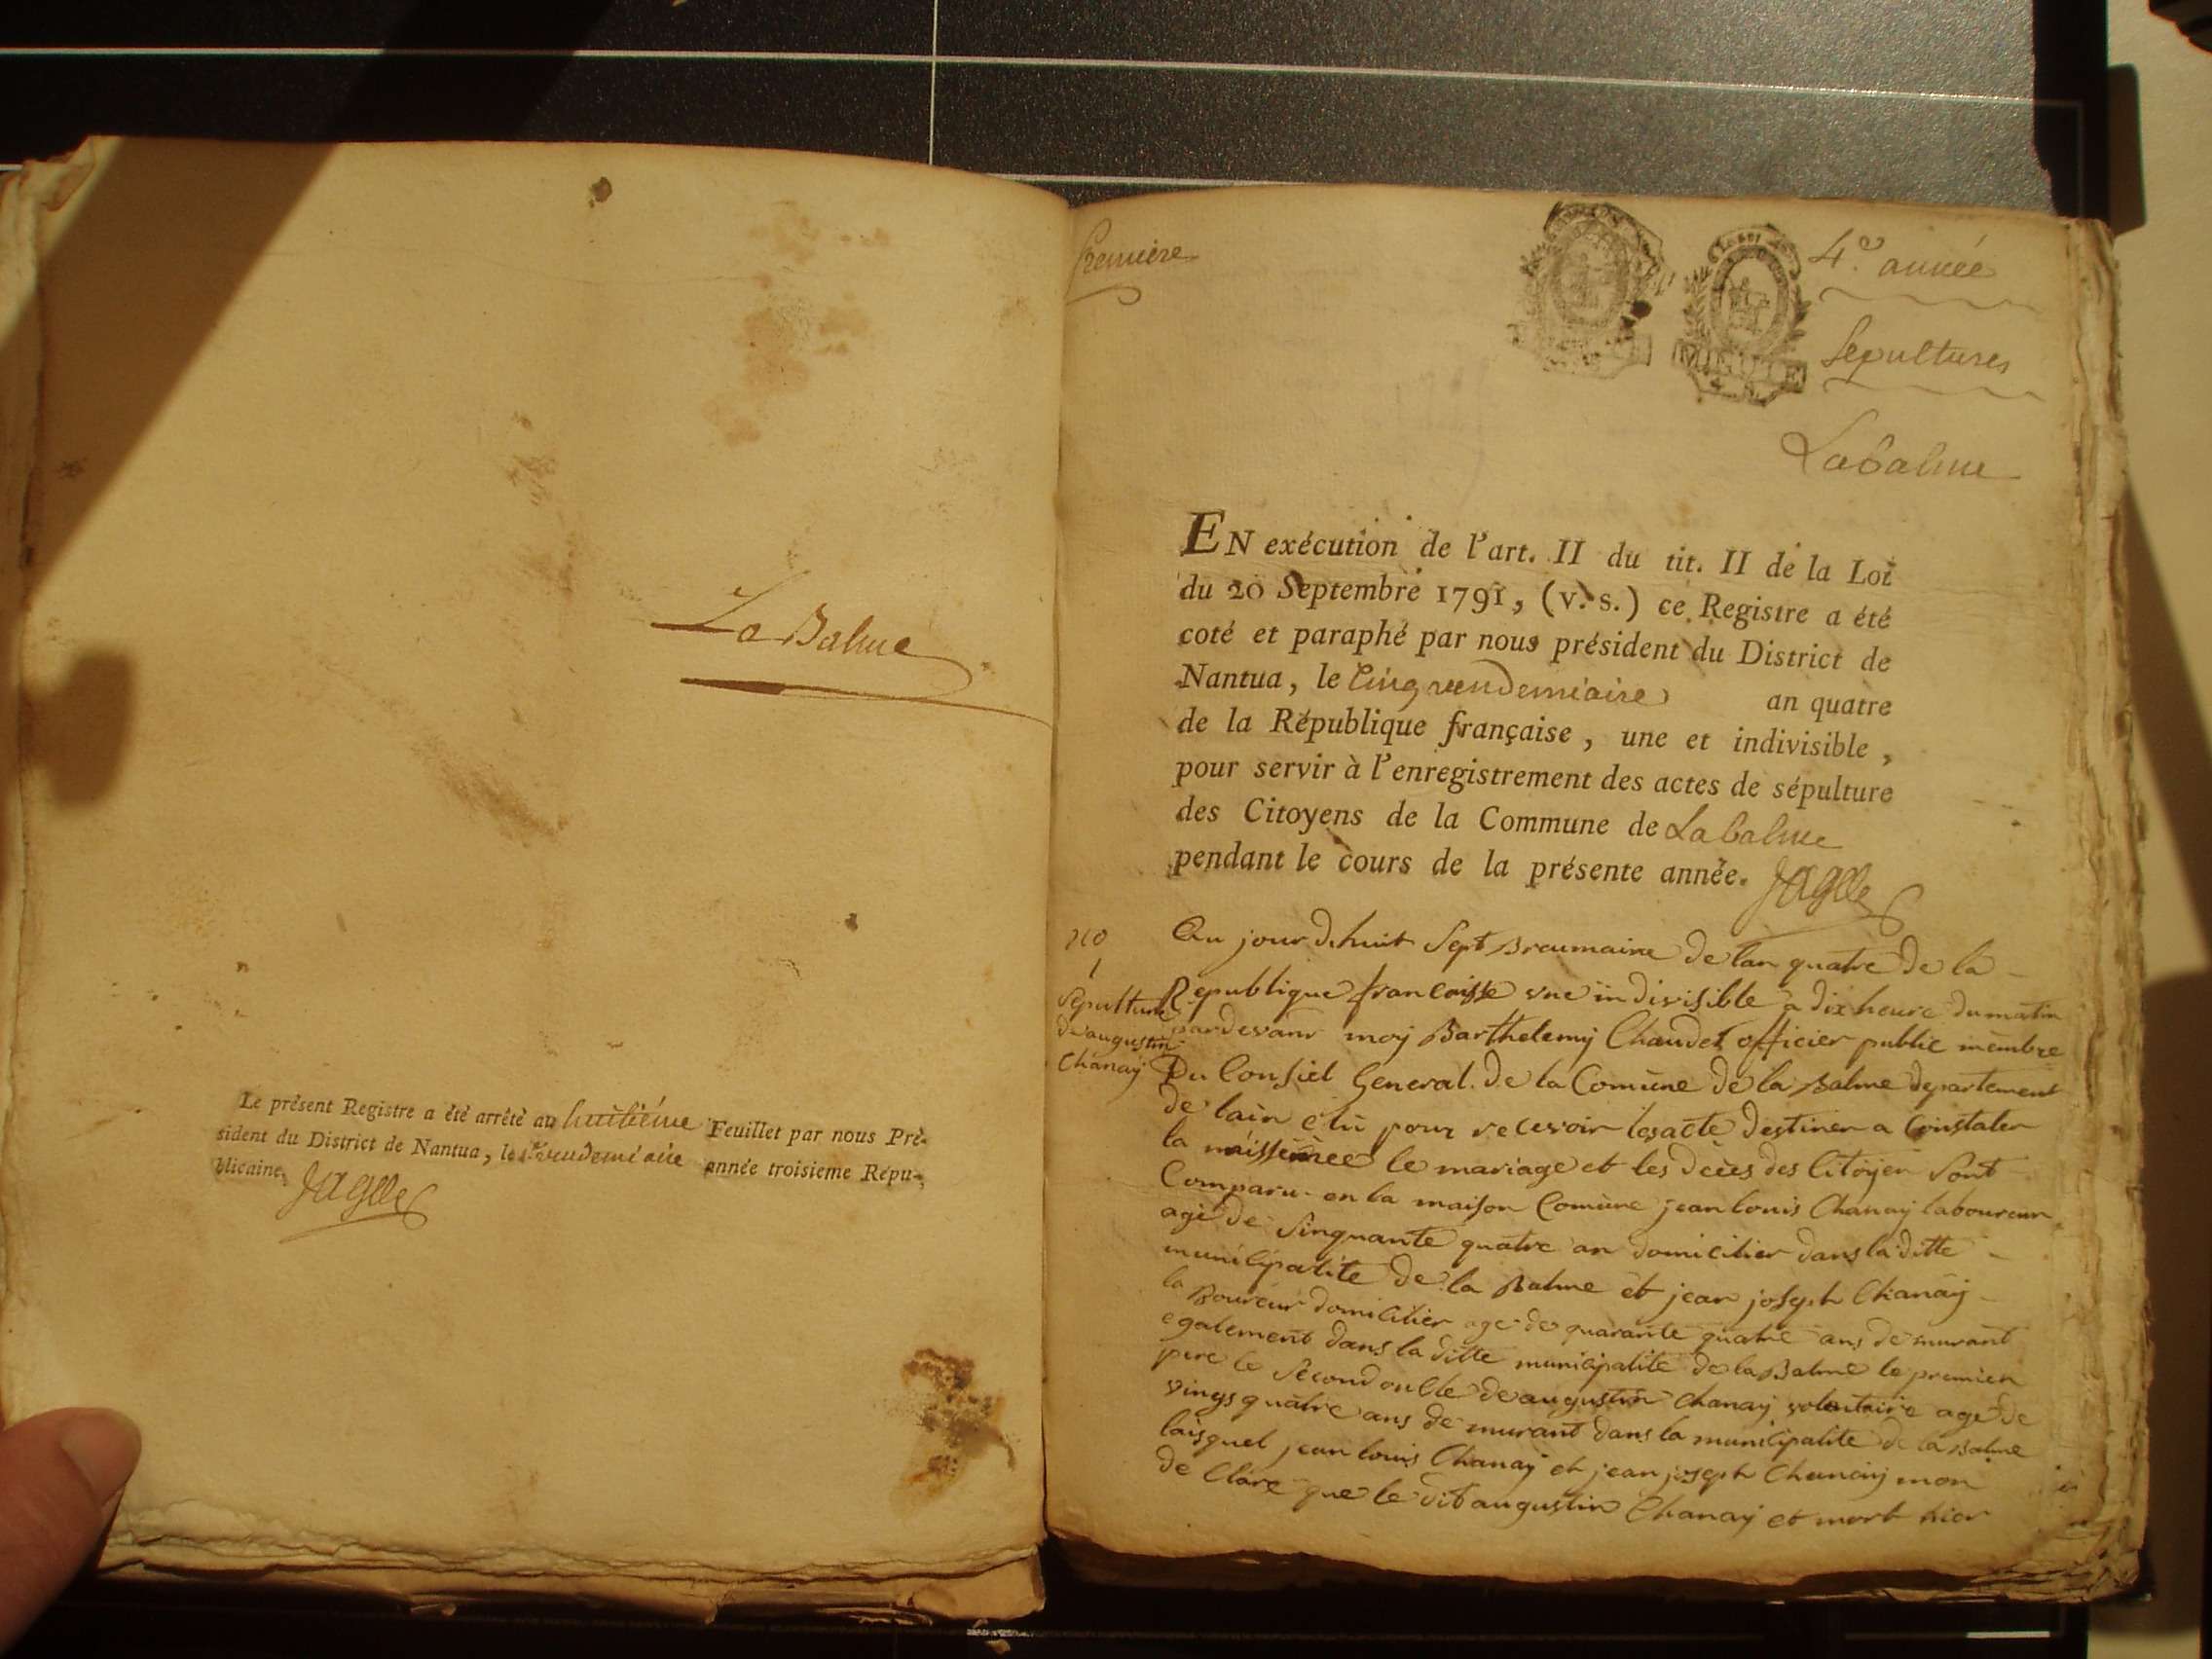 La Balme
Le présent Registre a été arrêté au huitiéme Feuillet par nous Pré-
sident du District de Nantua, le 1er vendemiaire année troisieme Répu-
blicaine.
Premiere
4.e année
Sepultures
Labalme
MINUTE
EN exécution de l'art. II du tit. II de la Loi
du 20 Septembre 1791, (v. s.) ce Registre a été
coté et paraphé par nous président du District de
Nantua, le Cinq vendemiaire an quatre
de la République française, une et indivisible,
pour servir à l'enregistrement des actes de sépulture
des Citoyens de la Commune de Labalme
pendant le cours de la présente année.
no
1
Sepulture
de augustin
Chanay
Au jourdhuit Sept Breumaire de lan quatre de la
Republique francoisse une indivisible a dix heure du matin
pardevant moy Barthelemy Chaudet officier public membre
Du Consiel General de la Comune de la Balme departement
de lain elu pour recevoir les acte destiner a Constater
la naissence le mariage et les deces des Citoyen Sont
Comparu en la maison Comune jean louis Chanay laboureur
agé de Sinquante quatre an domicilier dans la ditte
municipalite de la Balme et jean joseph Chanay
laboureur domicilier age de quarante quatre ans demurant
egalement dans la ditte municipalite de la Balme le premier
pere le Second oncle de augustin Chanay volontaire agé de
vings quatre ans demurant dans la municipalite de la Balme
laisquel jean louis Chanay et jean joseph Chanay mon
de Clare que le dit augustin Chanay et mort hier